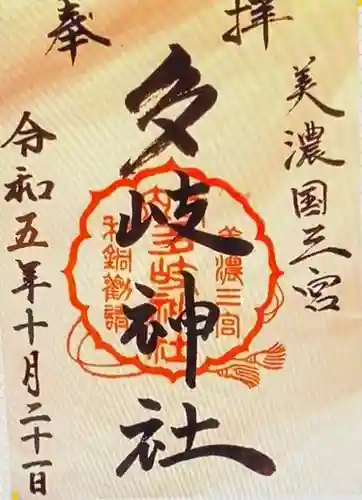 奉拝
美濃国三宮
多岐神社
令和五年十月二十一日
美濃三宮
多岐神社
和銅勧請